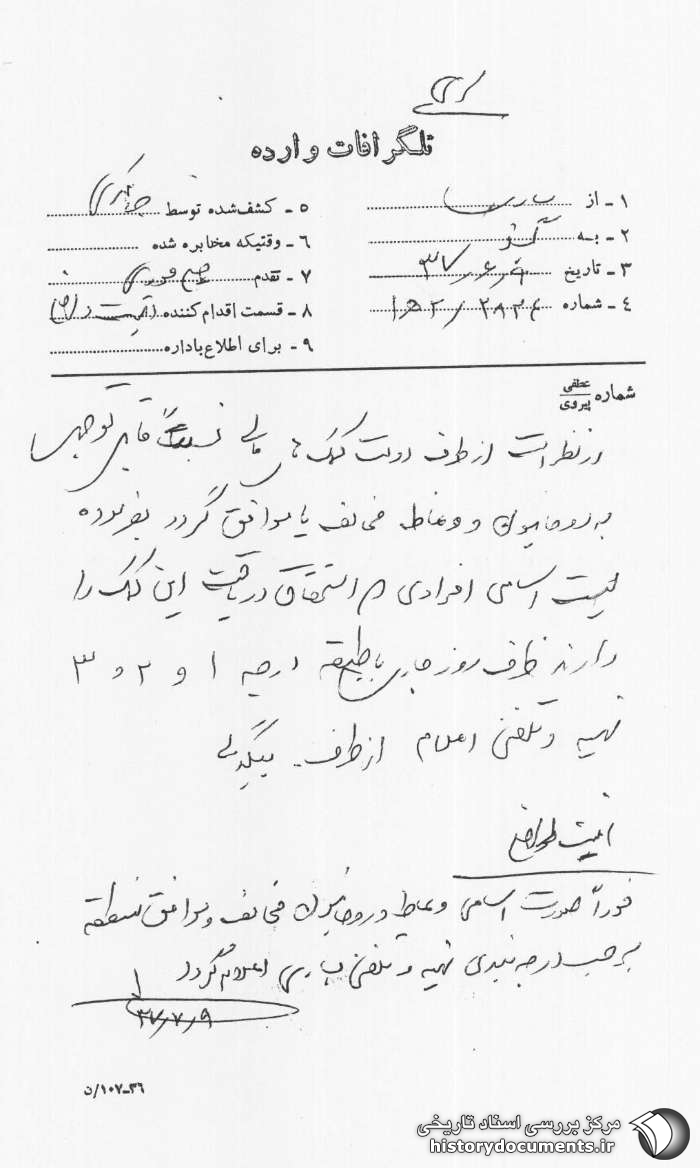 سری
تلگرافات وارده
۱ - از پارسا
۲ - به
۳ - تاریخ ۳۷/۶/۹
۴ - شماره ۱ﻫ۲/۲۸۲۴
۵ - کشف‌شده توسط
۶ - وقتیکه مخابره شده
۷ - تقدم
۸ - قسمت اقدام کننده
۹ - برای اطلاع باداره
شماره عطفی
پیروی
در نظر است از طرف دولت کمک های مالی نسبتاً قابل توجهی
به روحانیون و وعاظ مخالف یا موافق گردد بفرموده
لیست اسامی افرادی که استحقاق دریافت این کمک را
دارند ظرف روز جاری با طبقه درجه ۱ و ۲ و ۳
تهیه و تلفنی اعلام از طرف
امنیت داخلی
فوراً صورت اسامی وعاظ و روحانیون مخالف و موافق منطقه
برحسب درجه بندی تهیه و تلفنی بپارس اعلام گردد
۳۷/۷/۹
۳۶-۱۰۷/ن
مرکز بررسی اسناد تاریخی
historydocuments.ir